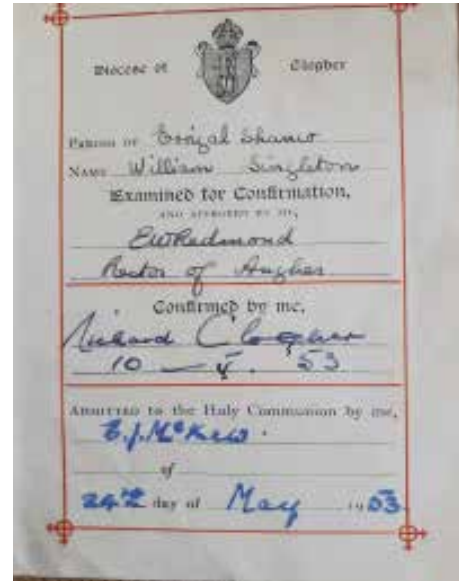 Diocese of Clogher
PARISH OF Errigal Shanco
NAME William Singleton
Examined for Confirmation,
AND APPROVED BY ME,
EWRedmond
Rector of Augher
Confirmed by me,
Richard Clogher
10 — V. 53
ADMITTED to the Holy Communion by me,
E.J. McKew.
of
24th day of May 1953